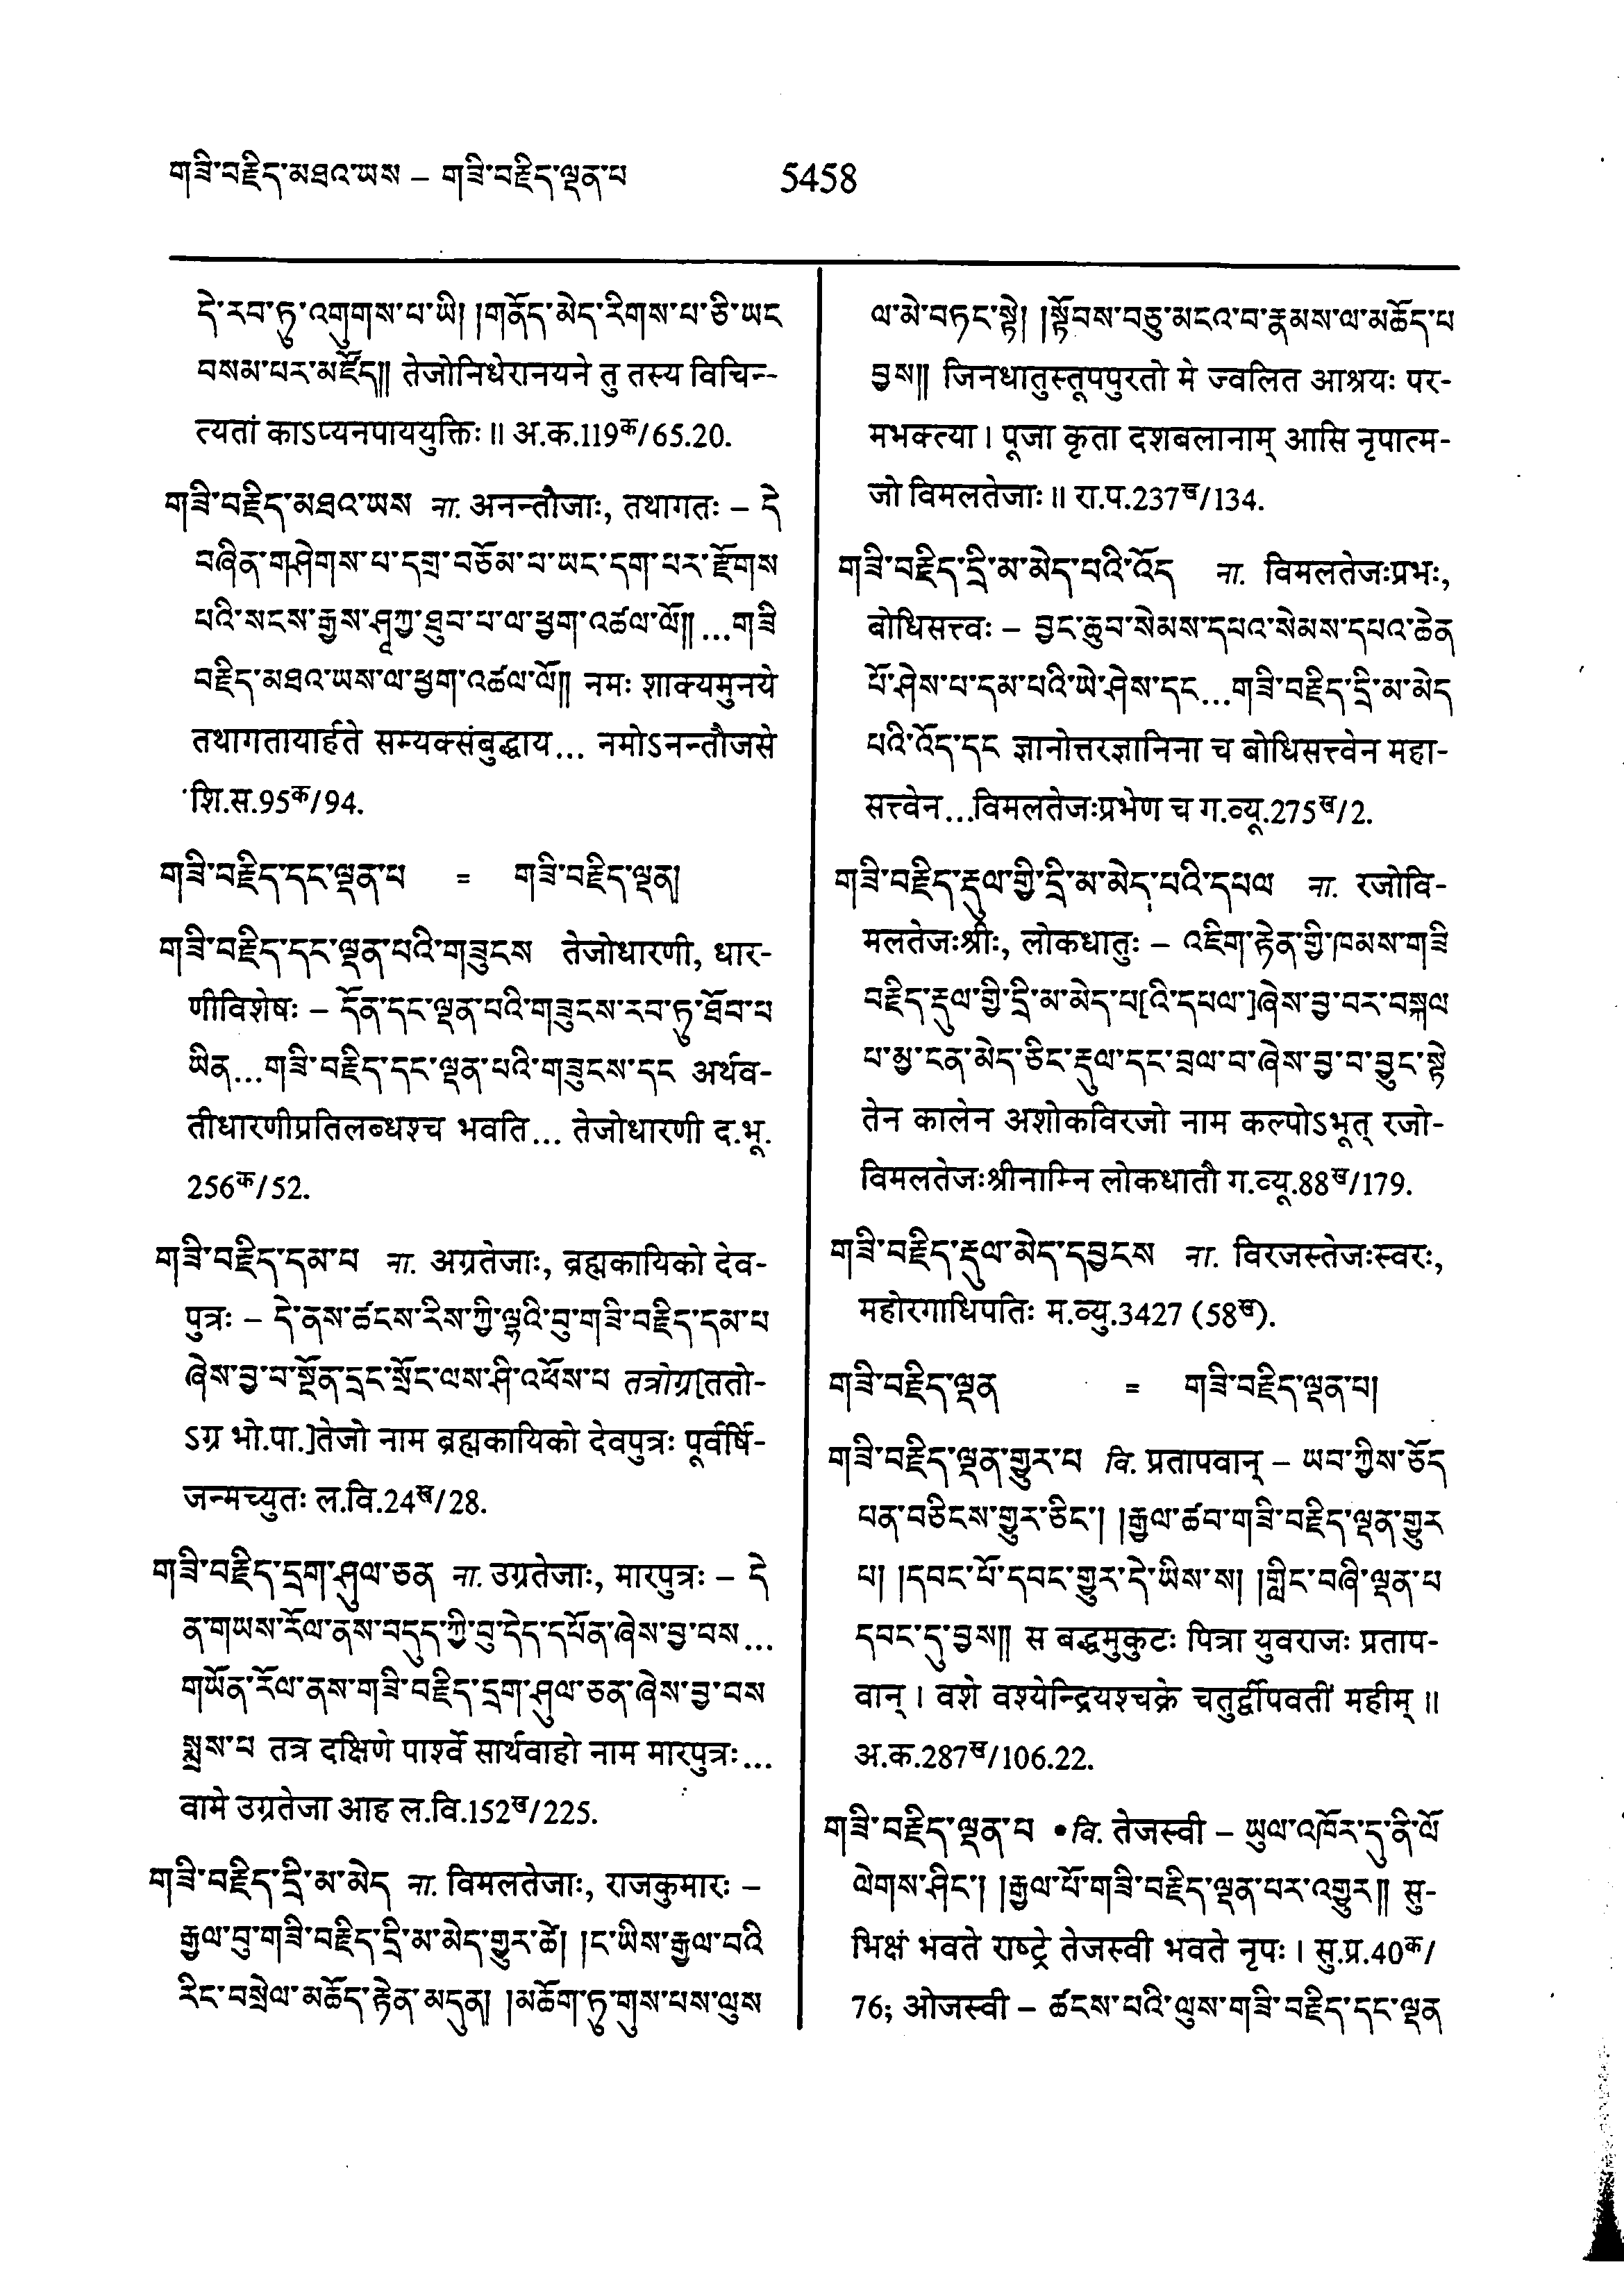 གཟི་བརྗིད་མཐའ་ཡས – གཟི་བརྗིད་ལྡན་པ 5458
དེ་རབ་ཏུ་འགུགས་པ་ཡི། །གནོད་མེད་རིགས་པ་ཅི་ཡང
བསམ་པར་མཛོད།། तेजोनिधेरानयने तु तस्य विचिन-
त्यतां काऽप्यनपाययुक्तिः ॥ अ.क.119क/65.20.
གཟི་བརྗིད་མཐའ་ཡས ना. अनन्तौजाः, तथागतः – དེ
བཞིན་གཤེགས་པ་དགྲ་བཅོམ་པ་ཡང་དག་པར་རྫོགས
པའི་སངས་རྒྱས་ཤཱཀྱ་ཐུབ་པ་ལ་ཕྱག་འཚལ་ལོ།། ...གཟི
བརྗིད་མཐའ་ཡས་ལ་ཕྱག་འཚལ་ལོ།། नमः शाक्यमुनये
तथागतायार्हते सम्यक्संबुद्धाय... नमोऽनन्तौजसे
शि.स.95क/94.
གཟི་བརྗིད་དང་ལྡན་པ = གཟི་བརྗིད་ལྡན།
གཟི་བརྗིད་དང་ལྡན་པའི་གཟུངས तेजोधारणी, धार-
णीविशेषः – དོན་དང་ལྡན་པའི་གཟུངས་རབ་ཏུ་ཐོབ་པ
ཡིན...གཟི་བརྗིད་དང་ལྡན་པའི་གཟུངས་དང अर्थव-
तीधारणीप्रतिलब्धश्च भवति... तेजोधारणी द.भू.
256क/52.
གཟི་བརྗིད་དམ་པ ना. अग्रतेजाः, ब्रह्मकायिको देव-
पुत्रः – དེ་ནས་ཚངས་རིས་ཀྱི་ལྷའི་བུ་གཟི་བརྗིད་དམ་པ
ཞེས་བྱ་བ་སྔོན་དྲང་སྲོང་ལས་ཤི་འཕོས་པ तत्रोग्र[ततो-
ऽग्र भो.पा.]तेजो नाम ब्रह्मकायिको देवपुत्रः पूर्वर्षि-
जन्मच्युतः ल.वि.24ख/28.
གཟི་བརྗིད་དྲག་ཤུལ་ཅན ना. उग्रतेजाः, मारपुत्रः – དེ
ན་གཡས་རོལ་ནས་བདུད་ཀྱི་བུ་དེད་དཔོན་ཞེས་བྱ་བས...
གཡོན་རོལ་ནས་གཟི་བརྗིད་དྲག་ཤུལ་ཅན་ཞེས་བྱ་བས
སྨྲས་པ तत्र दक्षिणे पार्श्वे सार्थवाहो नाम मारपुत्रः...
वामे उग्रतेजा आह ल.वि.152ख/225.
གཟི་བརྗིད་དྲི་མ་མེད ना. विमलतेजाः, राजकुमारः –
རྒྱལ་བུ་གཟི་བརྗིད་དྲི་མ་མེད་གྱུར་ཚེ། །ང་ཡིས་རྒྱལ་བའི
རིང་བསྲེལ་མཆོད་རྟེན་མདུན། །མཆོག་ཏུ་གུས་པས་ལུས
ལ་མེ་བཏང་སྟེ། །སྟོབས་བཅུ་མངའ་བ་རྣམས་ལ་མཆོད་པ
བྱས།། जिनधातुस्तूपपुरतो मे ज्वलित आश्रयः पर-
मभक्त्या। पूजा कृता दशबलानाम् आसि नृपात्म-
जो विमलतेजाः ॥ रा.प.237ख/134.
གཟི་བརྗིད་དྲི་མ་མེད་པའི་འོད ना. विमलतेजःप्रभः,
बोधिसत्त्वः – བྱང་ཆུབ་སེམས་དཔའ་སེམས་དཔའ་ཆེན
པོ་ཤེས་པ་དམ་པའི་ཡེ་ཤེས་དང...གཟི་བརྗིད་དྲི་མ་མེད
པའི་འོད་དང ज्ञानोत्तरज्ञानिना च बोधिसत्त्वेन महा-
सत्त्वेन...विमलतेजःप्रभेण च ग.व्यू.275ख/2.
གཟི་བརྗིད་རྡུལ་གྱི་དྲི་མ་མེད་པའི་དཔལ ना. रजोवि-
मलतेजःश्रीः, लोकधातुः – འཇིག་རྟེན་གྱི་ཁམས་གཟི
བརྗིད་རྡུལ་གྱི་དྲི་མ་མེད་པ[འི་དཔལ་]ཞེས་བྱ་བར་བསྐལ
པ་མྱ་ངན་མེད་ཅིང་རྡུལ་དང་བྲལ་བ་ཞེས་བྱ་བ་བྱུང་སྟེ
तेन कालेन अशोकविरजो नाम कल्पोऽभूत् रजो-
विमलतेजःश्रीनाम्नि लोकधातौ ग.व्यू.88ख/179.
གཟི་བརྗིད་རྡུལ་མེད་དབྱངས ना. विरजस्तेजःस्वरः,
महोरगाधिपतिः म.व्यु.3427 (58ख).
གཟི་བརྗིད་ལྡན = གཟི་བརྗིད་ལྡན་པ།
གཟི་བརྗིད་ལྡན་གྱུར་པ वि. प्रतापवान् – ཡབ་ཀྱིས་ཅོད
པན་བཅིངས་གྱུར་ཅིང་། །རྒྱལ་ཚབ་གཟི་བརྗིད་ལྡན་གྱུར
པ། །དབང་པོ་དབང་གྱུར་དེ་ཡིས་ས། །གླིང་བཞི་ལྡན་པ
དབང་དུ་བྱས།། स बद्धमुकुटः पित्रा युवराजः प्रताप-
वान्। वशे वश्येन्द्रियश्चक्रे चतुर्द्वीपवतीं महीम् ॥
अ.क.287ख/106.22.
གཟི་བརྗིད་ལྡན་པ •वि. तेजस्वी – ཡུལ་འཁོར་དུ་ནི་ལོ
ལེགས་ཤིང་། །རྒྱལ་པོ་གཟི་བརྗིད་ལྡན་པར་འགྱུར།། सु-
भिक्षं भवते राष्ट्रे तेजस्वी भवते नृपः। सु.प्र.40क/
76; ओजस्वी – ཚངས་པའི་ལུས་གཟི་བརྗིད་དང་ལྡན